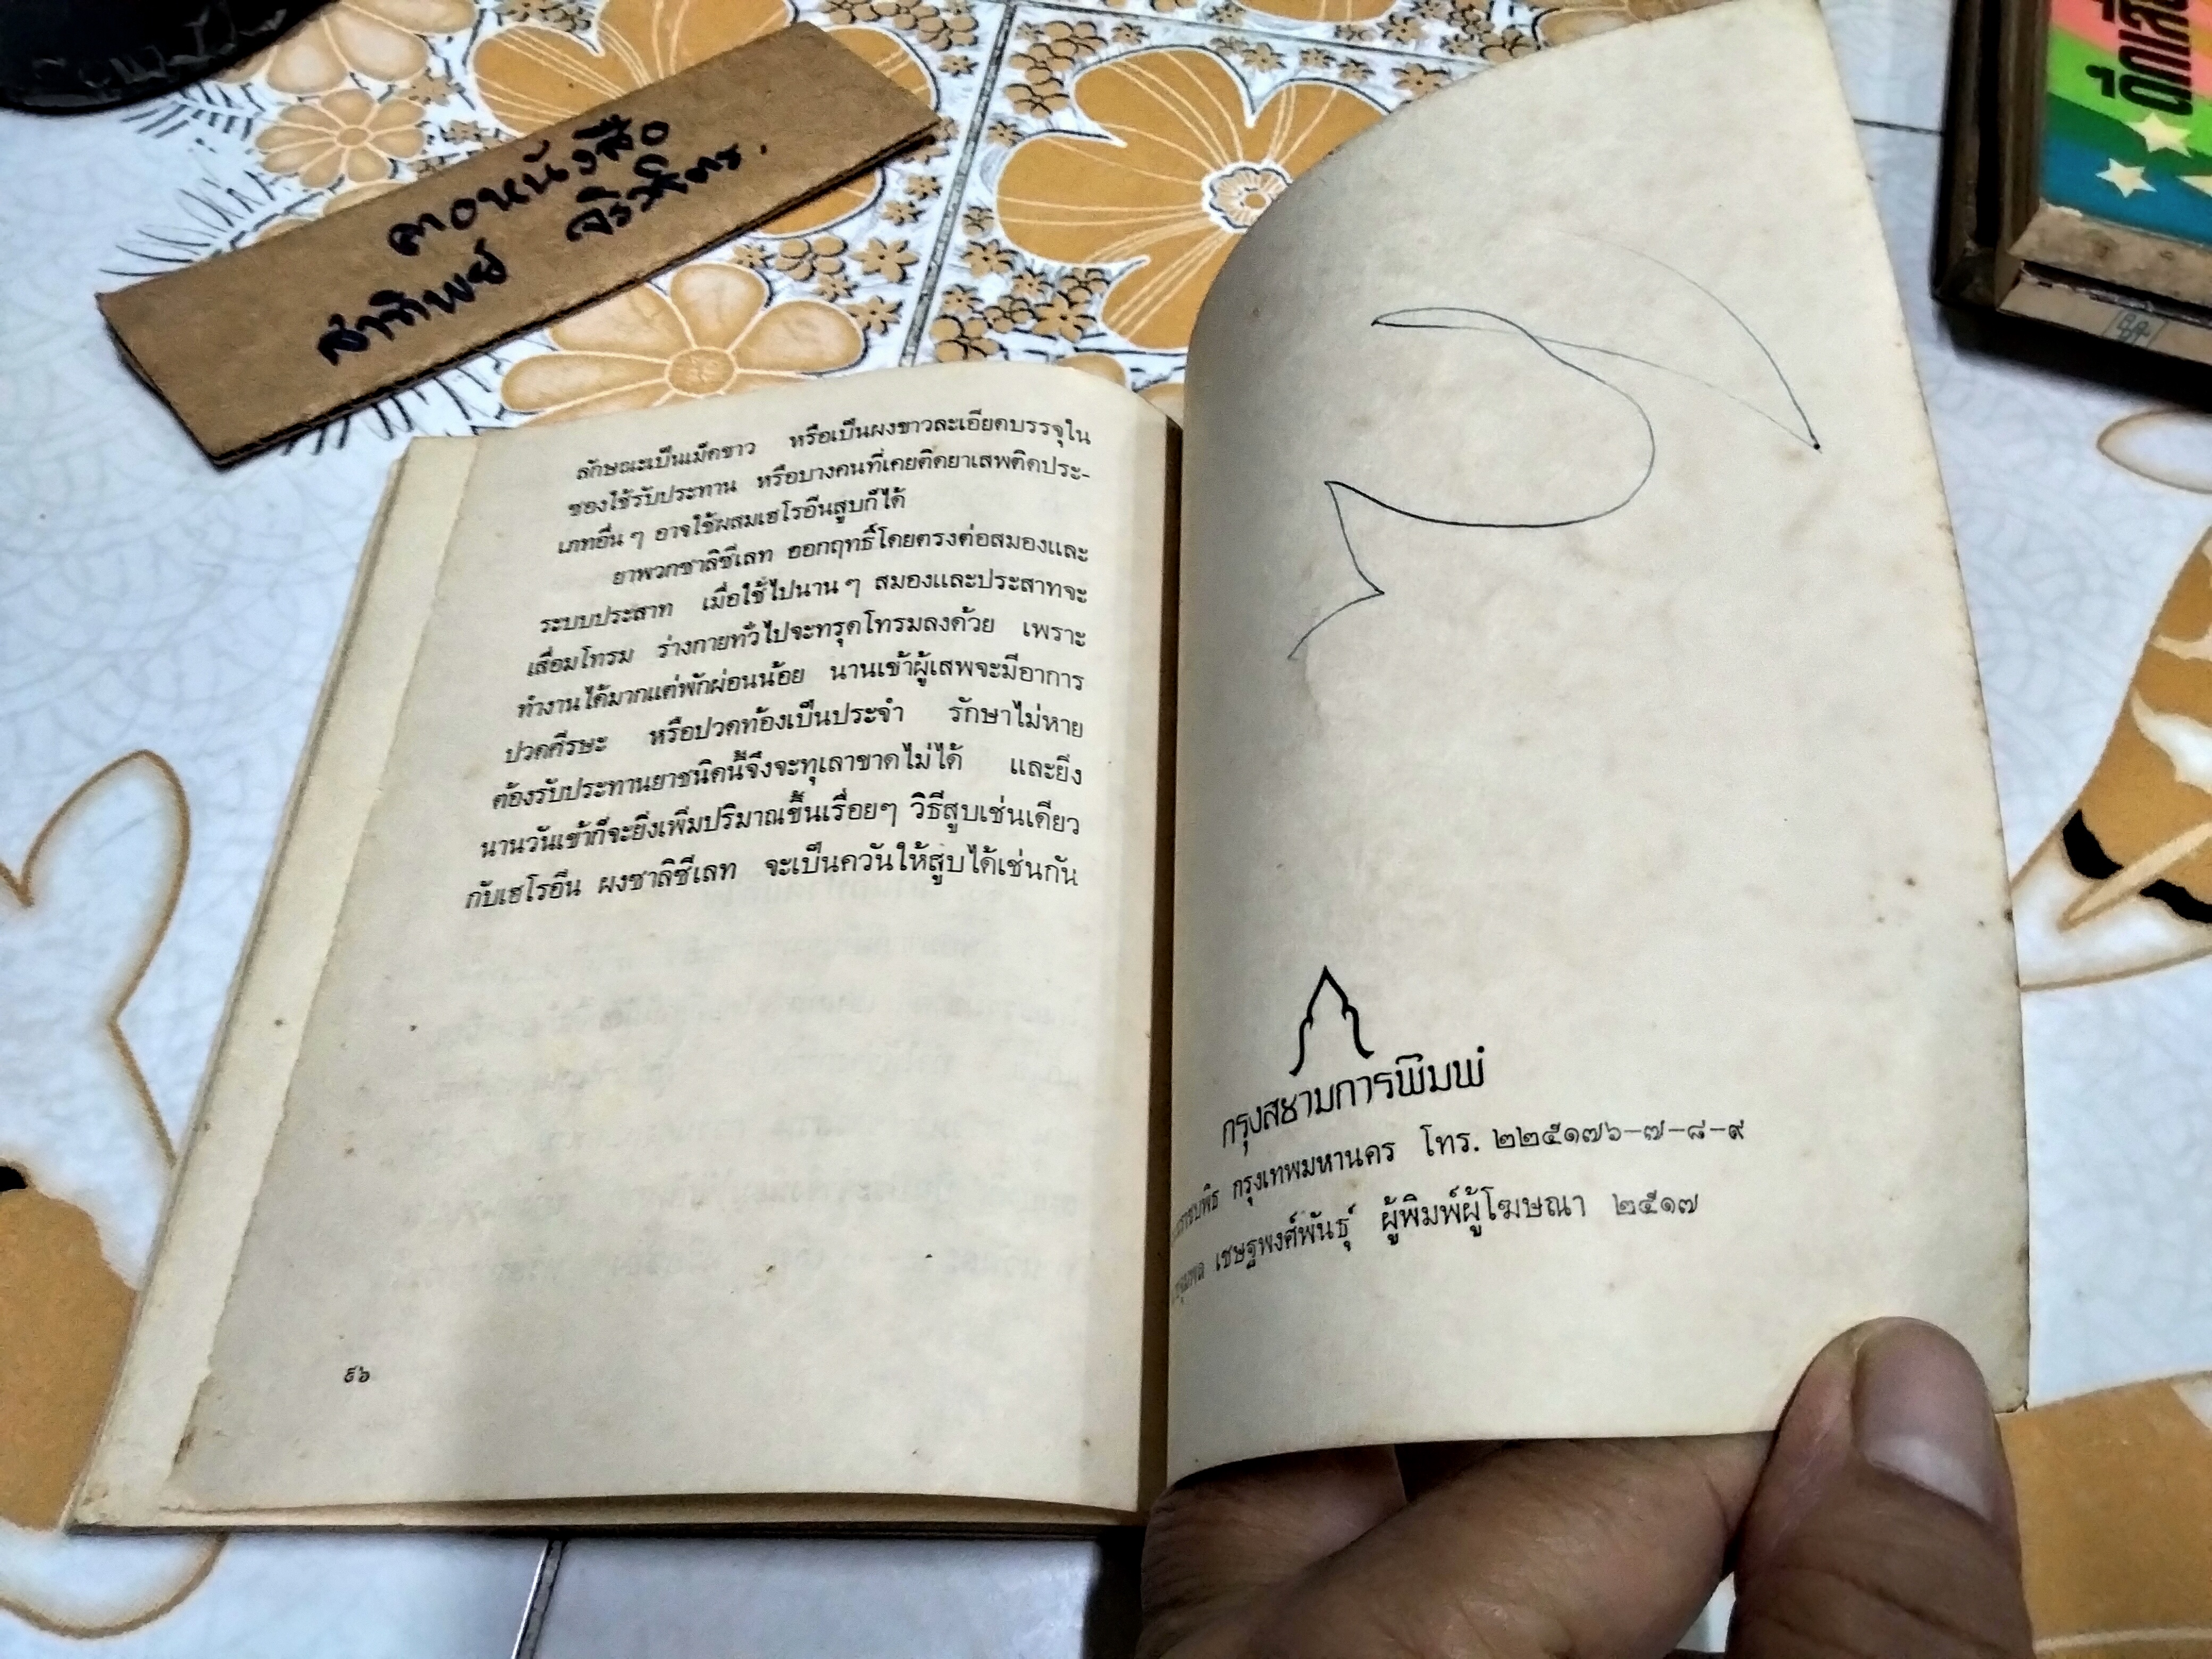 ตอหนังสือ
สาทิพย์
ลักษณะเป็นเม็ดขาว หรือเป็นผงขาวละเอียดบรรจุใน
ซองใช้รับประทาน หรือบางคนที่เคยติดยาเสพติดประ-
เภทอื่น ๆ อาจใช้ผสมเฮโรอีนสูบก็ได้
ยาพวกซาลิซีเลท ออกฤทธิ์โดยตรงต่อสมองและ
ระบบประสาท เมื่อใช้ไปนาน ๆ สมองและประสาทจะ
เสื่อมโทรม ร่างกายทั่วไปจะทรุดโทรมลงด้วย เพราะ
ทำงานได้มากแต่พักผ่อนน้อย นานเข้าผู้เสพจะมีอาการ
ปวดศีรษะ หรือปวดท้องเป็นประจำ รักษาไม่หาย
ต้องรับประทานยาชนิดนี้จึงจะทุเลาขาดไม่ได้ และยิ่ง
นานวันเข้าก็จะยิ่งเพิ่มปริมาณขึ้นเรื่อยๆ วิธีสูบเช่นเดียว
กับเฮโรอีน ผงซาลิซีเลท จะเป็นควันให้สูบได้เช่นกัน
๙๖
กรุงสยามการพิมพ์
กรุงเทพมหานคร โทร. ๒๒๕๑๗๖-๗-๘-๙
เชษฐพงศ์พันธุ์ ผู้พิมพ์ผู้โฆษณา ๒๕๑๗